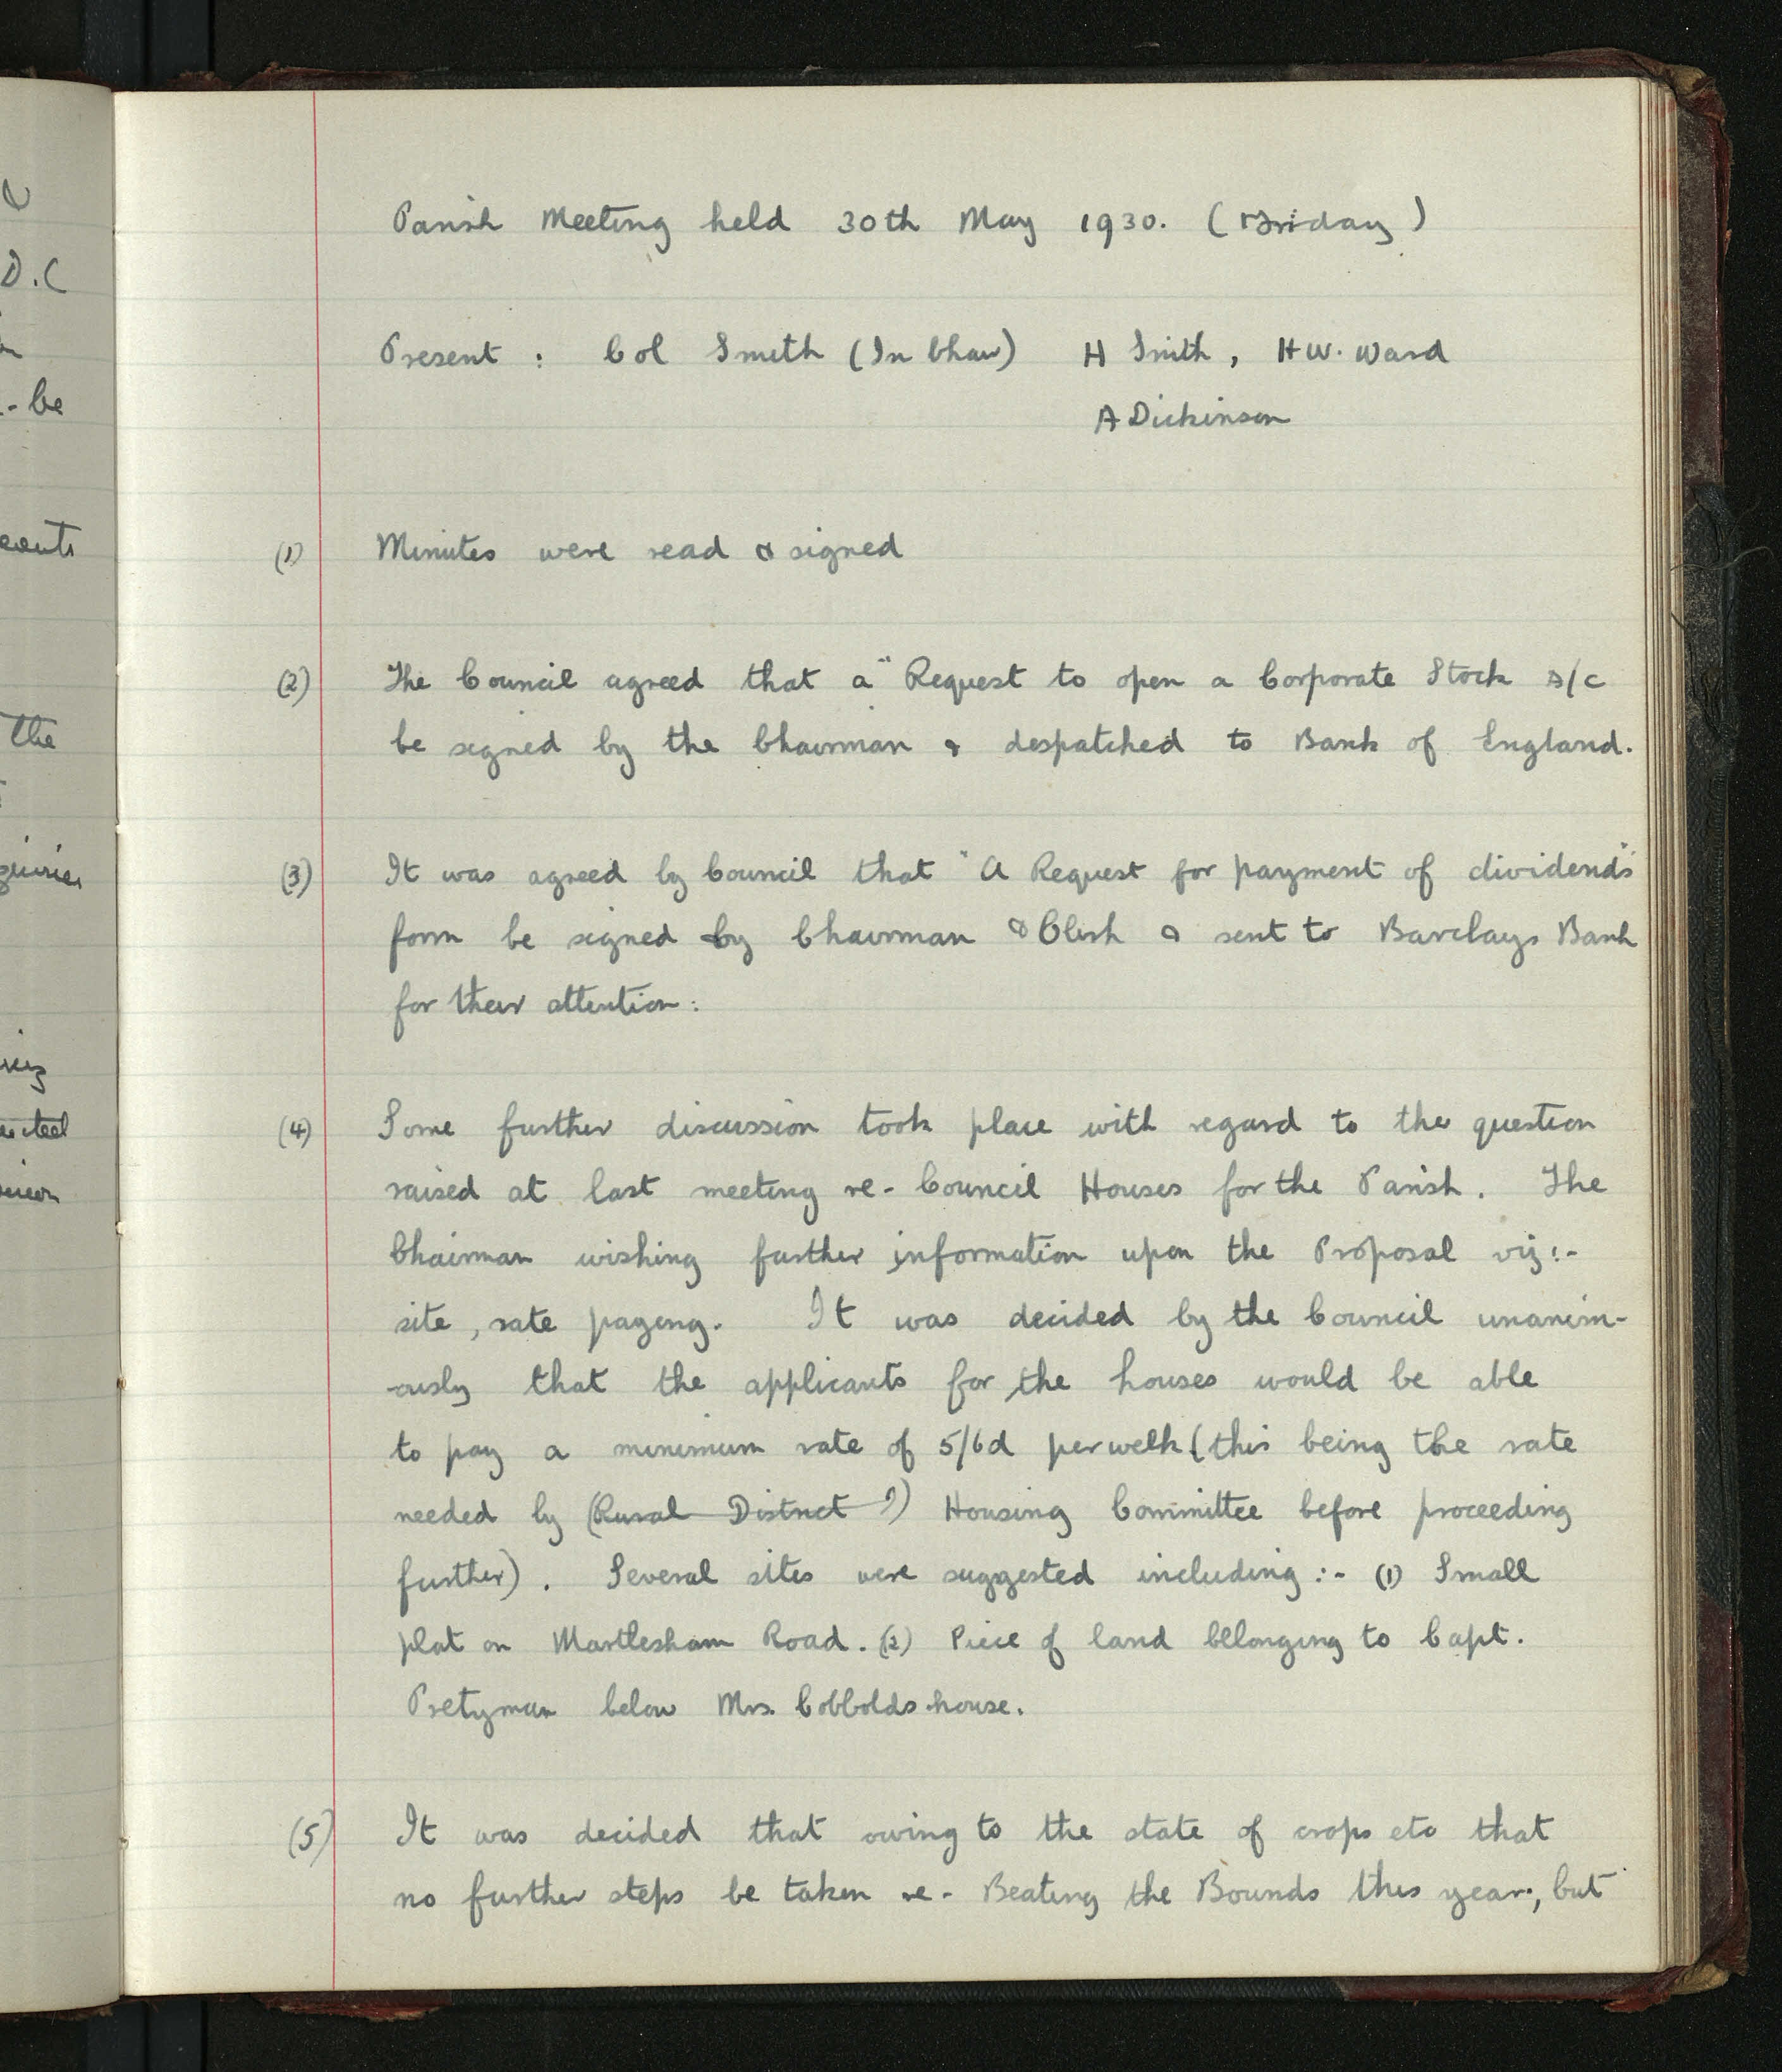 Parish Meeting held 30th May 1930. (Friday)
Present : Col Smith (In Chair) H Smith, H W. Ward
A Dickinson
(1) Minutes were read & signed
(2) The Council agreed that a "Request to open a Corporate Stock a/c
be signed by the Chairman & despatched to Bank of England.
(3) It was agreed by Council that "A Request for payment of dividends"
form be signed by Chairman & Clerk & sent to Barclays Bank
for their attention:
(4) Some further discussion took place with regard to the question
raised at last meeting re- Council Houses for the Parish. The
Chairman wishing further information upon the Proposal viz:-
site, rate paying. It was decided by the Council unanim-
-ously that the applicants for the houses would be able
to pay a minimum rate of 5/6d per week (this being the rate
needed by (Rural District ?) Housing Committee before proceeding
further). Several sites were suggested including:- (1) Small
plot on Martlesham Road. (2) Piece of land belonging to Capt.
Pretyman below Mrs. Cobbolds house.
(5) It was decided that owing to the state of crops etc that
no further steps be taken re- Beating the Bounds this year, but
D.C
- be
the